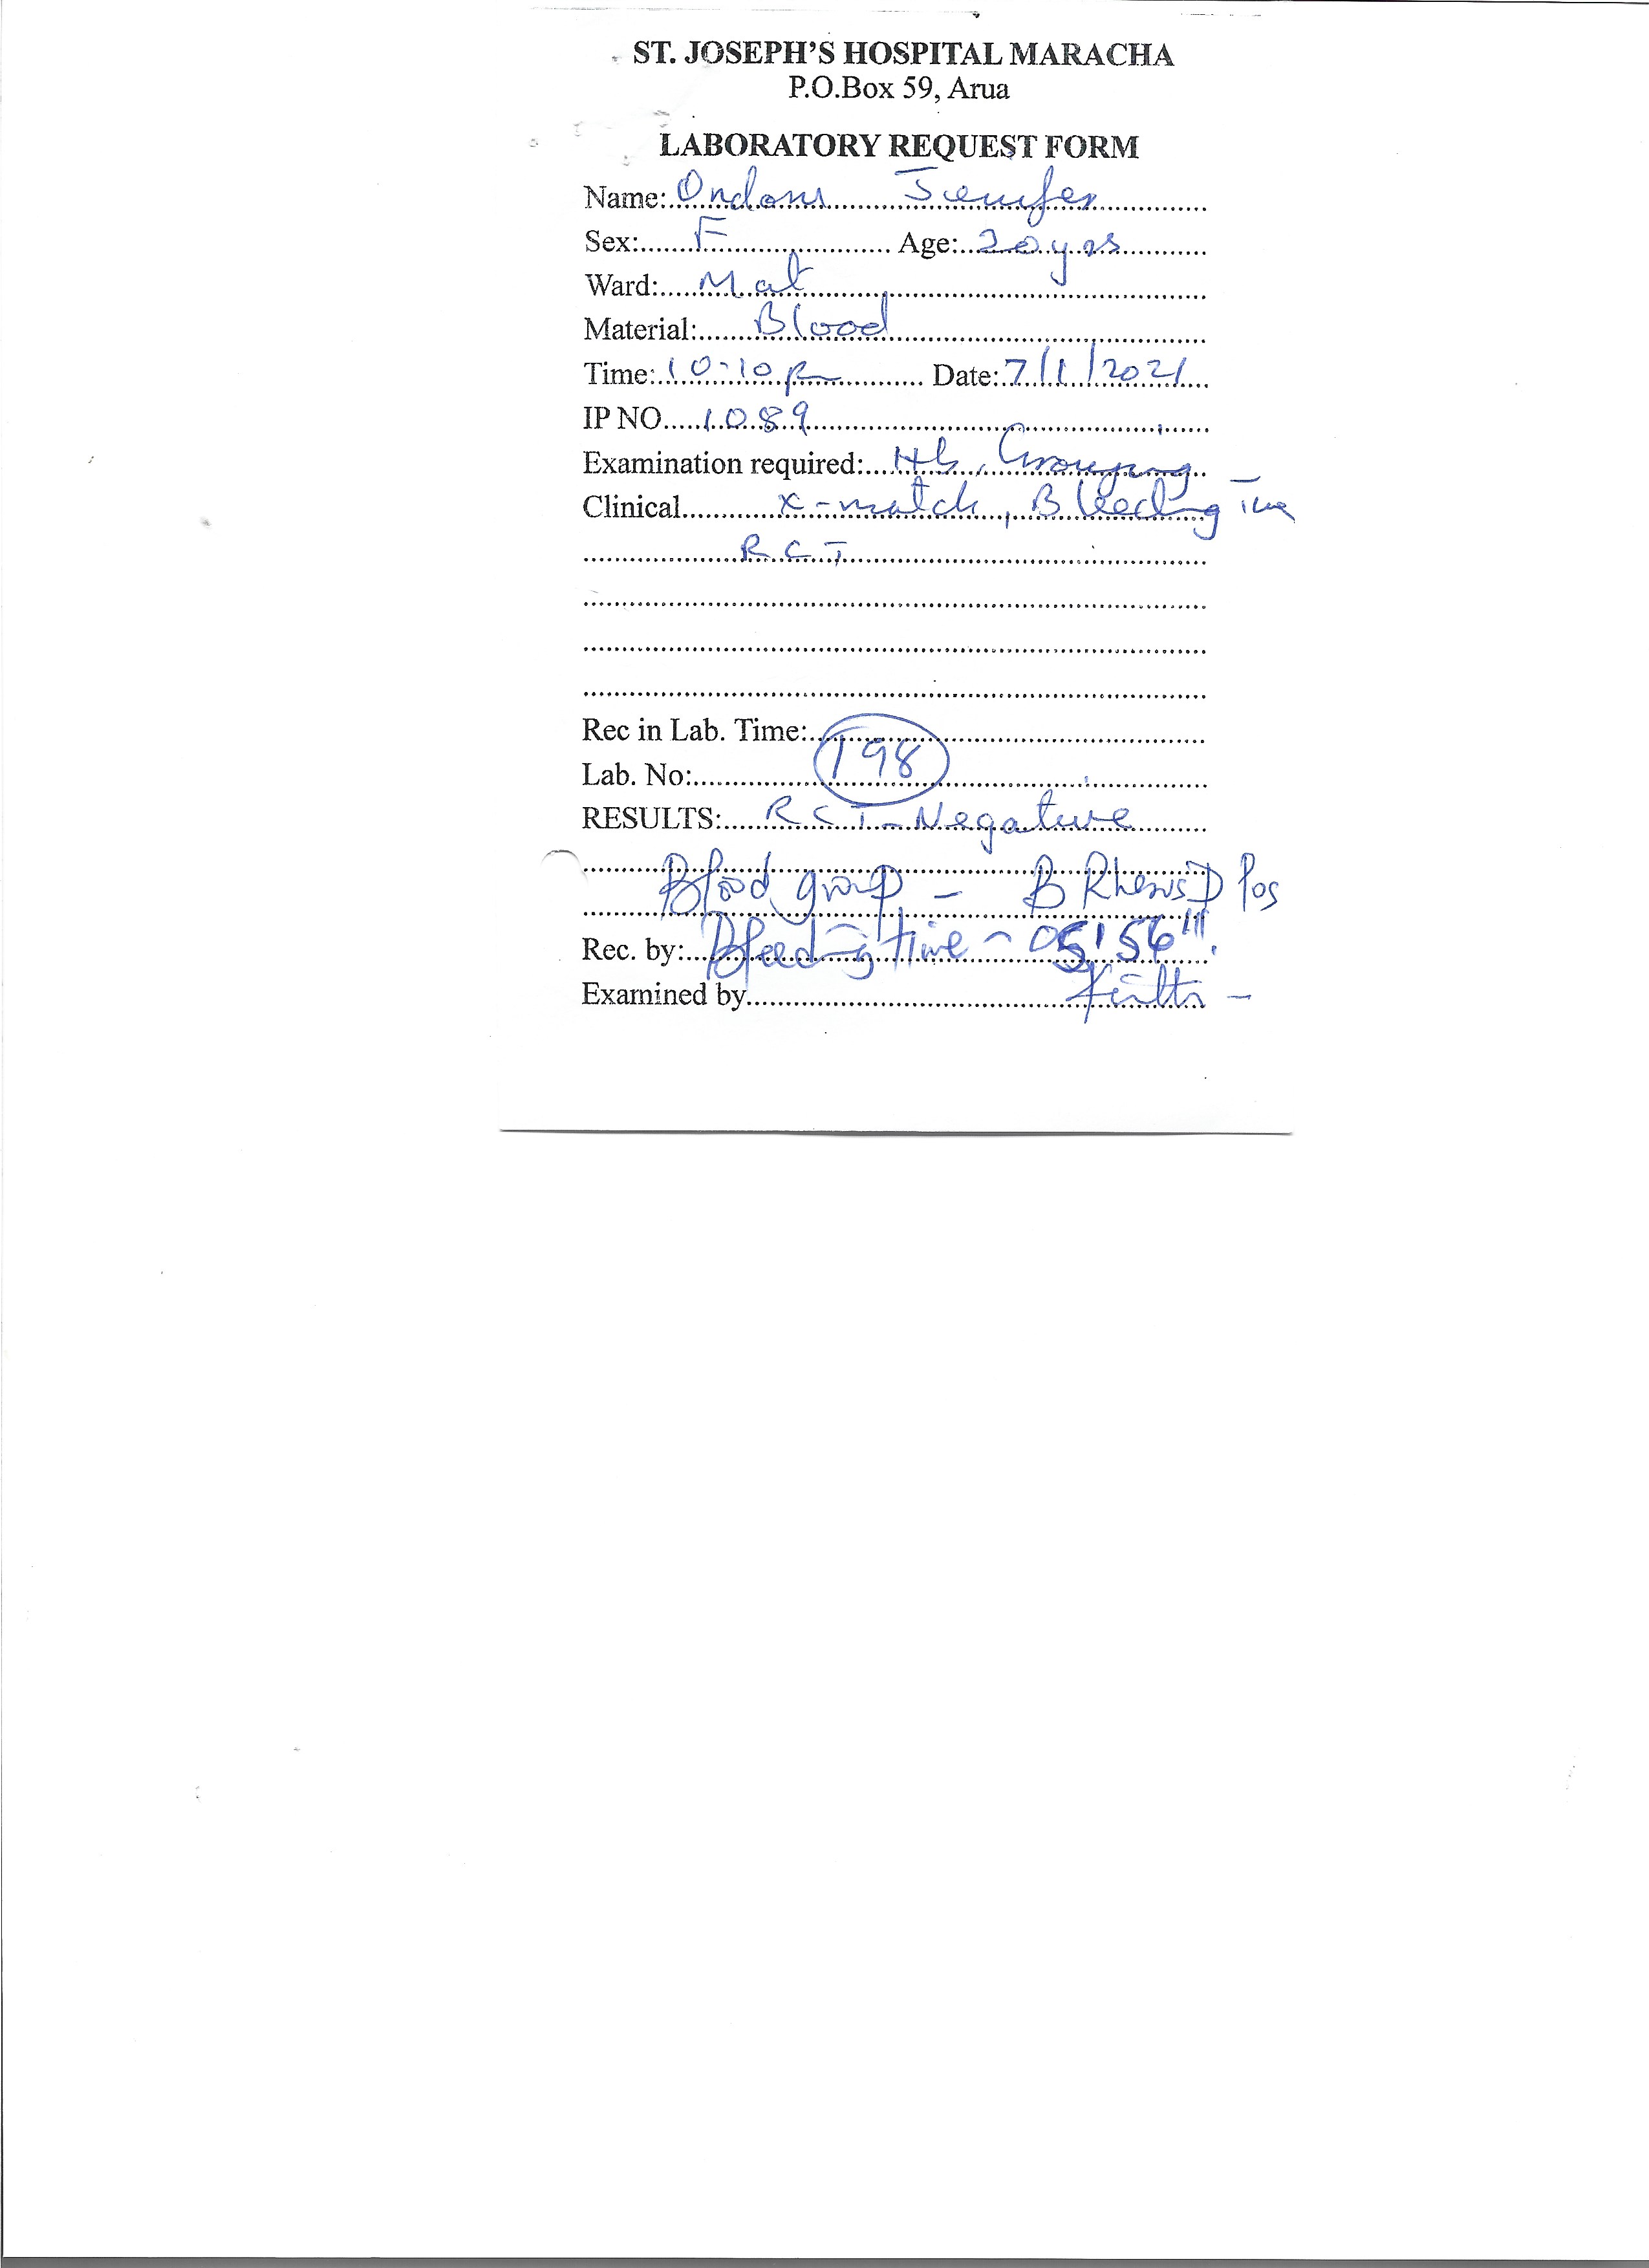 ST. JOSEPH'S HOSPITAL MARACHA
P.O.Box 59, Arua
LABORATORY REQUEST FORM
Name: Ondoni Jenifer
Sex: F Age: 20 yrs
Ward: Mat
Material: Blood
Time: 10:10 pm Date: 7/1/2021
IP NO 1089
Examination required: Hb, Grouping
Clinical x-match, Bleeding Time
RCT
Rec in Lab. Time:
Lab. No: 198
RESULTS: RCT - Negative
Blood group - B Rhesus D Pos
Rec. by: Bleeding time - 05' 56'''.
Examined by